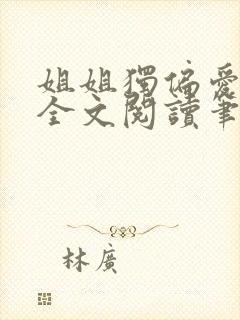 姐姐獨偏愛
全文閱讀筆
林廣